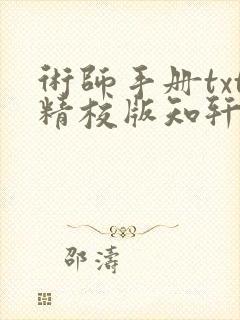 術師手册txt
精校版知轩
邵濤